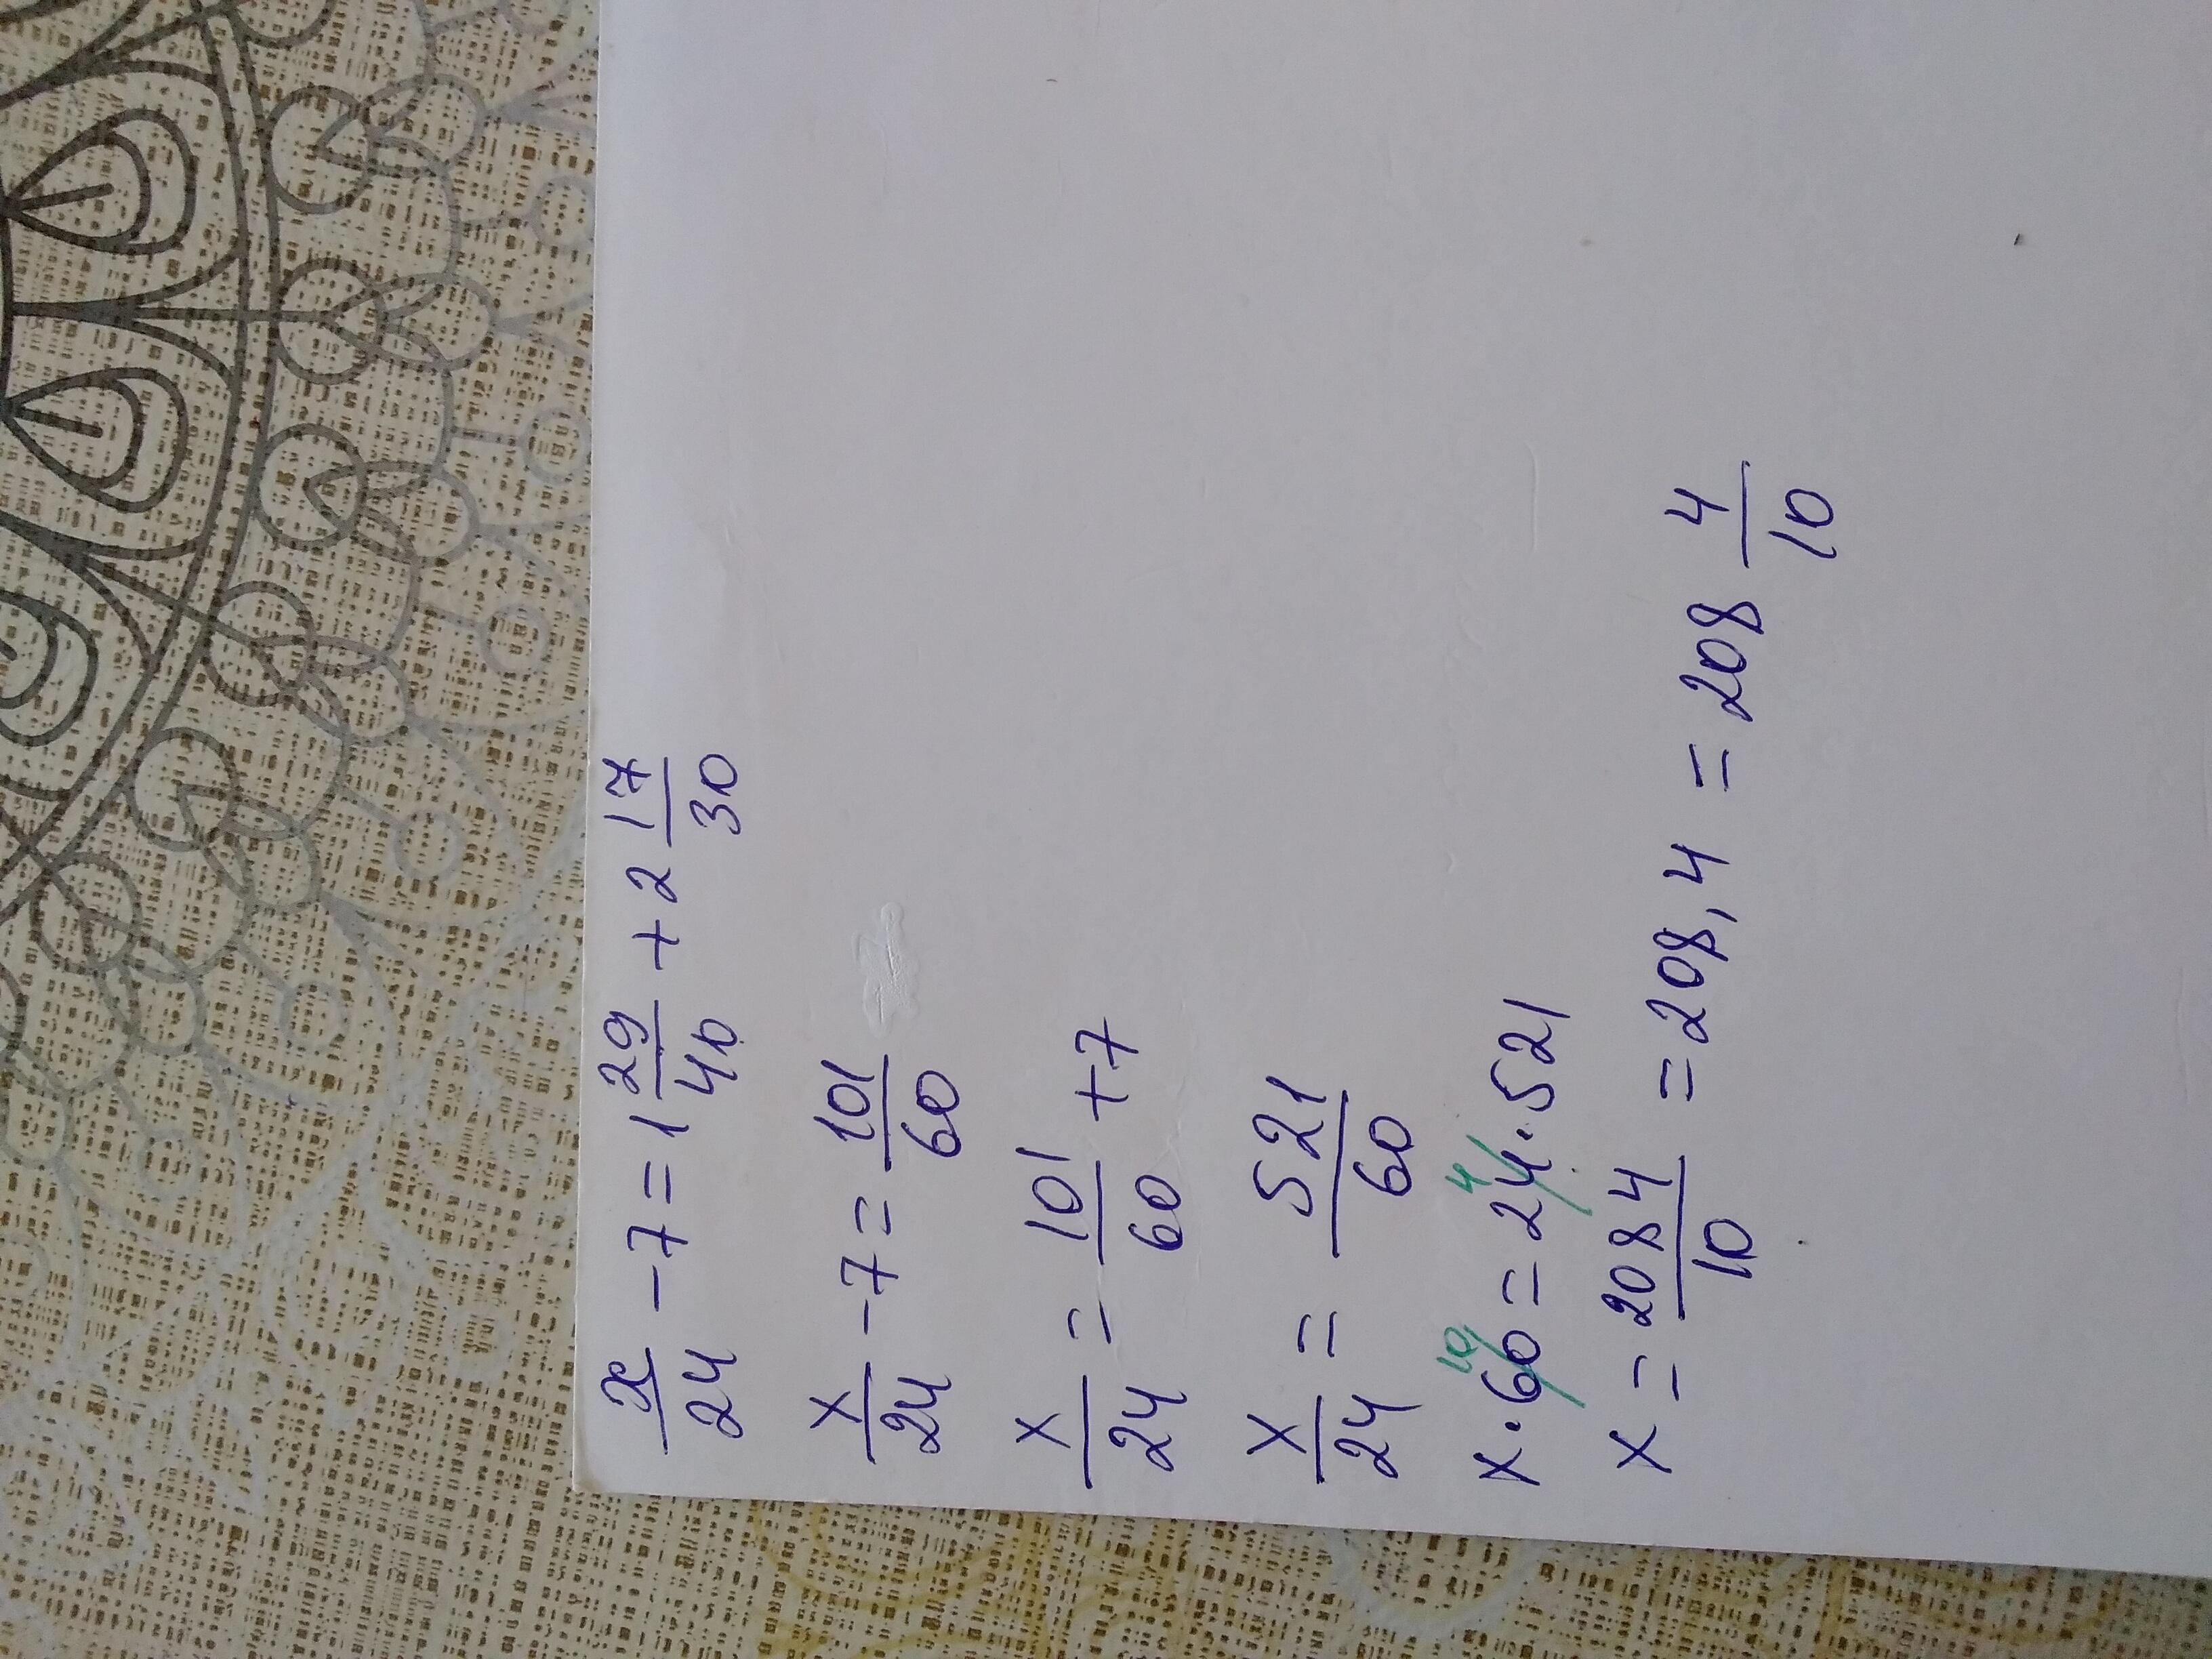 x/24 − 7 = 1 29/40 + 2 17/30
x/24 − 7 = 101/60
x/24 = 101/60 + 7
x/24 = 521/60
x · 60 10 = 24 4 · 521
x = 2084/10 = 208,4 = 208 4/10